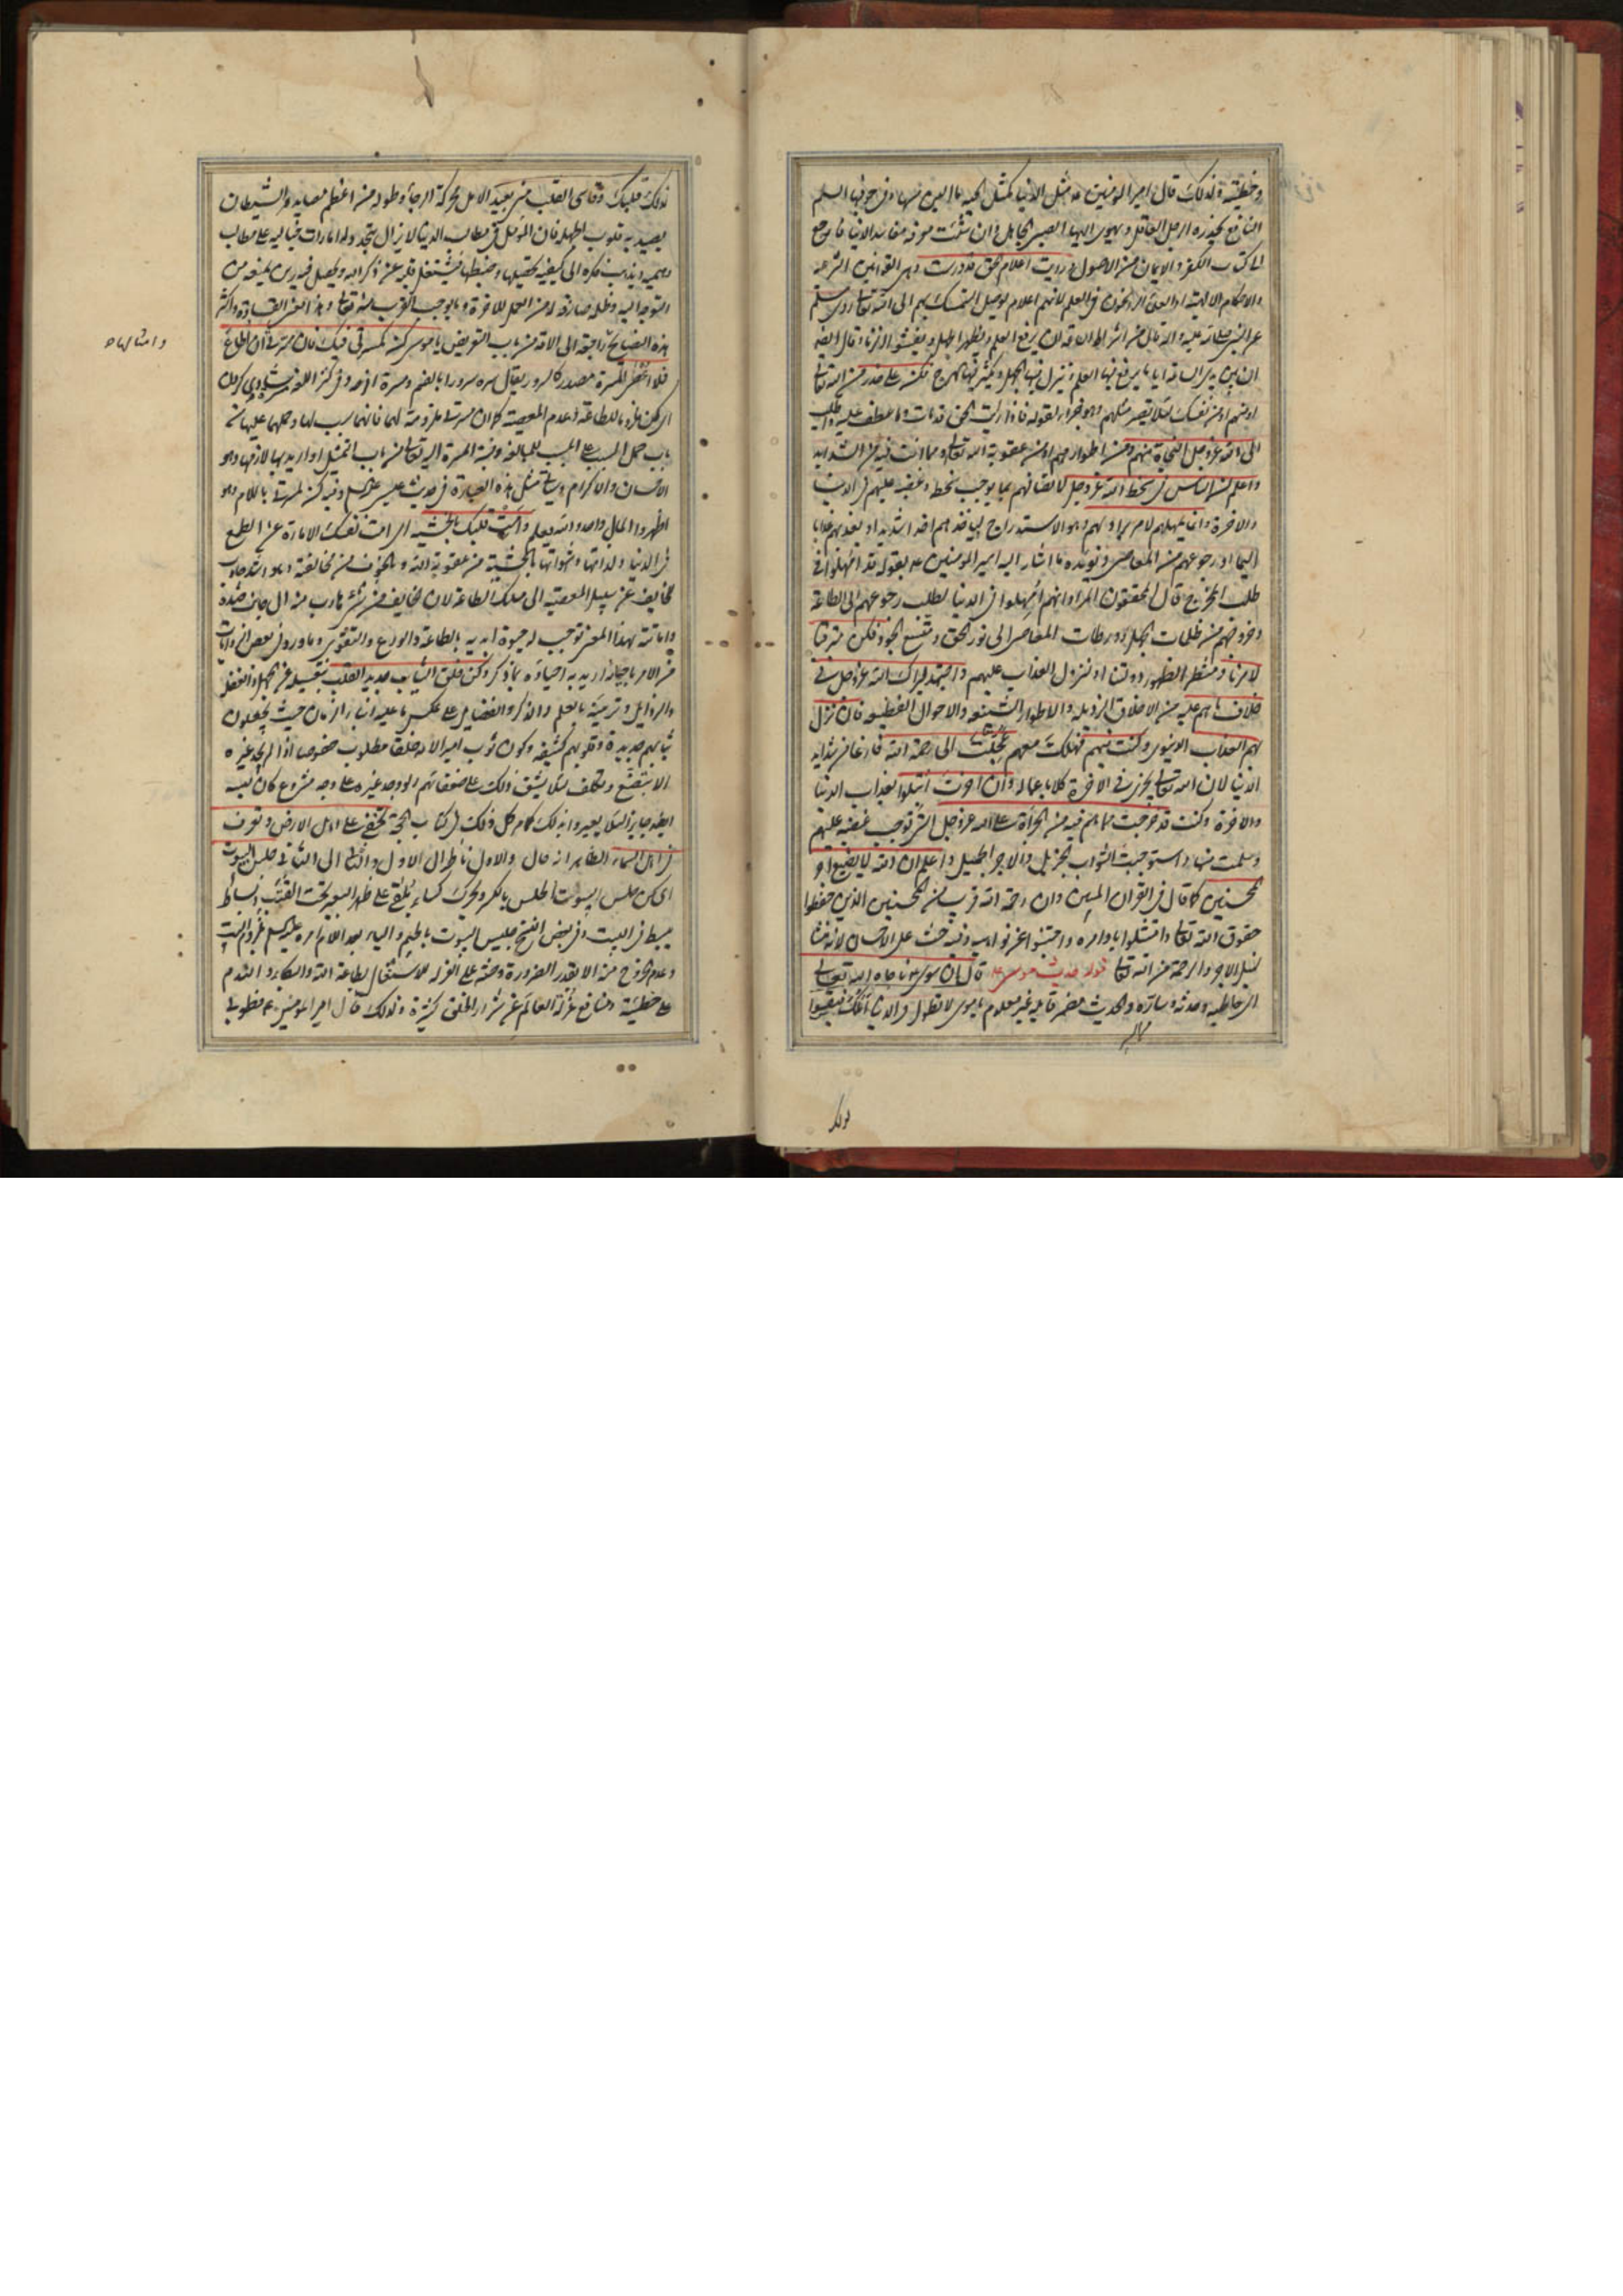 وخطيئته ولذلك قال امير المؤمنين ع مثل الدنيا كمثل الحية ما الين مسها وفي جوفها السم
الناقع يحذره الرجل العاقل ويهوى اليها الصبي الجاهل وان شئت معرفة مفاسد الدنيا فارجع
الى كتاب الكفر والايمان من الاصول ورويت اعلام الحق قد درست وهي القوانين الشرعية
والاحكام الالهية او العلماء الراسخون في العلم لانهم اعلام لوصول التمسك بهم الى الله تعالى روى مسلم
عن النبي صلى الله عليه واله قال من اشراط الساعة ان يرفع العلم ويظهر الجهل ويفشو الزنا وقال ايضا
ان بين يدي الساعة اياما يرفع فيها العلم وينزل فيها الجهل ويكثر فيها الهرج فكن على حذر من الله تعالى
او منهم او من نفسك لئلا تصير مثلهم وهو جزاء لقوله فاذا رايت الحق قد مات وما عطف عليه واطلب
الى الله عز وجل النجاة منهم ومن اطوارهم او من عقوبة الله تعالى ومما انت فيه من الشدايد
واعلم ان الناس في سخط الله عز وجل لاتصافهم بما يوجب سخطه وغضبه عليهم في الدنيا
والاخرة وانما يمهلهم لامر يراد بهم وهو الاستدراج لياخذهم اخذا شديدا او يعذبهم عذابا
اليما او رجوعهم من المعاصي ويؤيده ما اشار اليه امير المؤمنين ع بقوله قد امهلوا في
طلب المخرج قال المحققون المراد انهم امهلوا في الدنيا لطلب رجوعهم الى الطاعة
وخروجهم من ظلمات الجهل وورطات المعاصي الى نور الحق ومتسع الجود فكن مترقبا
لامرنا ومنتظر الظهور دولتنا او لنزول العذاب عليهم واجتهد ليراك الله عز وجل في
خلاف ما هم عليه من الاخلاق الرذيلة والاطوار الشنيعة والاحوال الفظيعة فان نزل
بهم العذاب الدنيوي وكنت فيهم فهلكت معهم عجلت الى رحمة الله فارغا من شدايد
الدنيا لان الله تعالى يجزي في الاخرة كلا باعماله وان اخرت ابتلوا بعذاب الدنيا
والاخرة وكنت قد خرجت مما هم فيه من الجراة على الله عز وجل التي توجب غضبه عليهم
وسلمت منها واستوجبت الثواب الجزيل والاجر الجميل واعلم ان الله لا يضيع اجر
المحسنين كما قال في القران المبين وان رحمة الله قريب من المحسنين الذين حفظوا
حقوق الله تعالى وامتثلوا باوامره واجتنبوا عن نواهيه وفيه حث على الاحسان لانه منشا
لنيل الاجر والرحمة من الله تعالى قوله حديث موسى ع قال ان موسى ع ناجاه الله تعالى
اي خاطبه وحدثه وساره والحديث مضمر قايله غير معلوم يا موسى لا تطول في الدنيا املك فيقسوا
لذلك
لذلك قلبك وقاسي القلب مني بعيد الامل بحركة الرجاء وطوله من اعظم مصايد الشيطان
يصيد به قلوب الجهلة فان المؤمل في مطالب الدنيا لا يزال يتجدد له امارات خيالية على مطالب
وهمية ويذهب فكره الى كيفية تحصيلها وضبطها فيشتغل قلبه عن ذكر الله ويحصل فيه رين يمنعه من
التوجه اليه وظلمة صارفة له من العمل للاخرة وما يوجب القرب منه تعالى وهذا معنى القساوة واكثر
هذه النصايح راجعة الى الامة من باب التعريض يا موسى كن كمسرتي فيك فان مسرتي ان اطاع
وامثالها ص
فلا اعصى المسرة مصدر كالسرور يقال سره سرورا بالضم ومسرة افرحه وفي كنز اللغة مسرت شادي كردن
اي كن ملزوما للطاعة وعدم المعصية كما ان مسرتي ملزومة لهما فانهما سبب لها وحملها عليها من
باب حمل السبب على المسبب للمبالغة ونسبة المسرة اليه تعالى من باب التمثيل او اريد بها لازمها وهو
الاحسان والاكرام وياتي مثل هذه العبارة في حديث عيسى عليه السلم وفيه كن لمسرتي باللام وهو
اظهر والمال واحد والله يعلم وامت قلبك بالخشية اي امت نفسك الامارة عن الطمع
في الدنيا ولذاتها وشهواتها بالخشية من عقوبة الله والخوف من مخالفته وهو اشد جاذب
للخايف عن سبيل المعصية الى مسلك الطاعة لان الخايف من شيء هارب منه الى جانب ضده
واماتته بهذا المعنى توجب له حيوة ابدية بالطاعة والورع والتقوى وما ورد في بعض الروايات
من الامر باحيائه اريد به احياؤه بما ذكر وكن خلق الثياب جديد القلب بتغسيله عن الجهل والغفلة
والرذايل وتزيينه بالعلم والذكر والفضايل على عكس ما عليه ابناء الزمان حيث يجعلون
ثيابهم جديدة وقلوبهم كثيفة وكون ثوب امير الامة خلقا مطلوب خصوصا اذا لم يجد غيره
الا بتصنع وتكلف لئلا يشق ذلك على ضعفائهم ولو وجد غيره على وجه مشروع كان لبسه
ايضا جايزا لئلا يعير وانه لك كما مر كل ذلك في كتاب الحجة تخفى على اهل الارض وتعرف
في اهل السماء الظاهر انه حال والاول ناظر الى الاول والثاني الى الثاني حلس البيوت
اي كن حلس البيوت الحلس بالكسر ويحرك كساء يلقى على ظهر البعير تحت القتب وبساط
يبسط في البيت وفي بعض النسخ جليس البيوت بالجيم والياء بعد اللام امره عليه السلم بلزوم البيت
وعدم الخروج منه الا بقدر الضرورة وحثه على العزلة للاشتغال بطاعة الله والبكاء والندم
على خطيئته ومنافع عزلة العالم عن شرار الخلق كثيرة ولذلك قال امير المؤمنين ع فطوبى